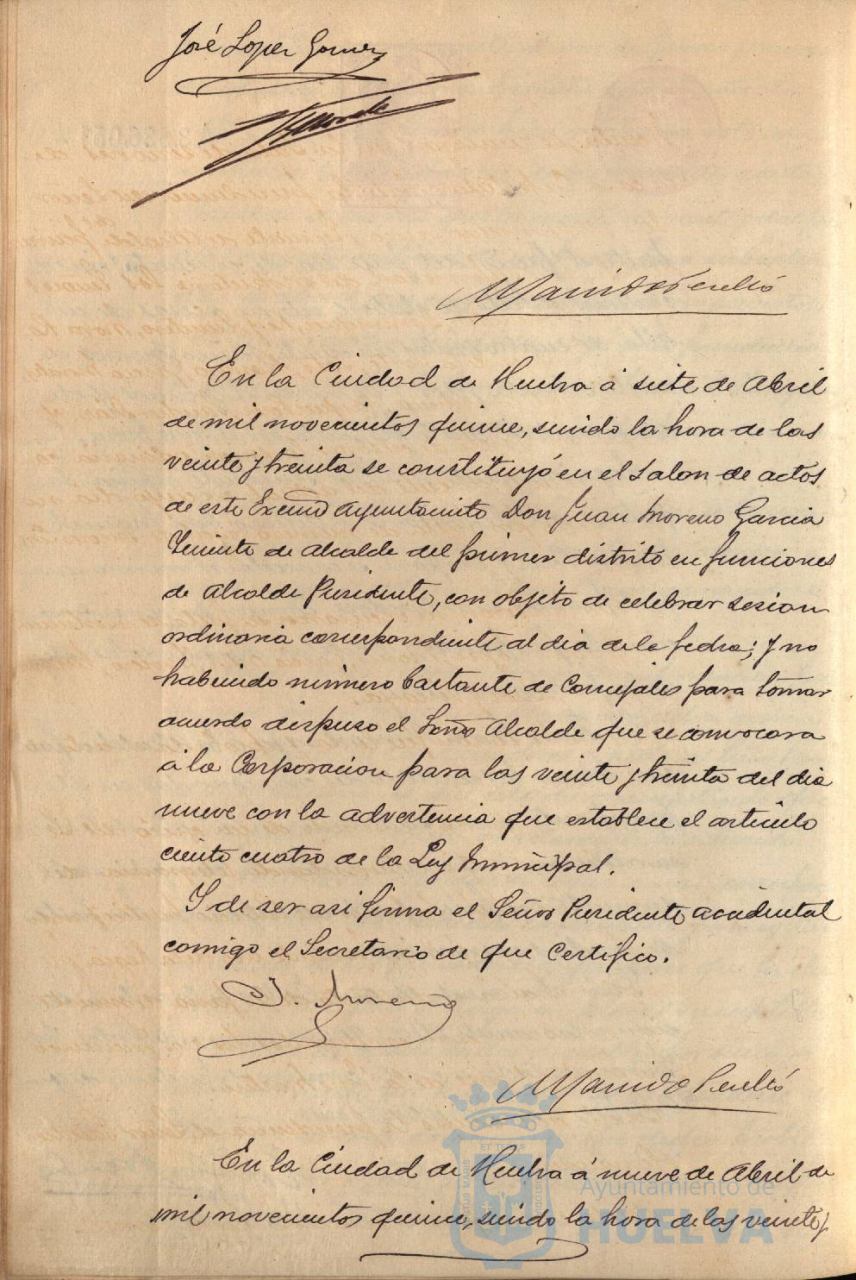 José Lopez Gomez
En la Ciudad de Huelva á siete de Abril
de mil novecientos quince, siendo la hora de las
veinte y treinta se constituyó en el salon de actos
de este Excmo Ayuntamiento Don Juan Moreno Garcia
Teniente de Alcalde del primer distrito en funciones
de Alcalde Presidente, con objeto de celebrar sesion
ordinaria correspondiente al dia de la fecha; y no
habiendo número bastante de Concejales para tomar
acuerdo dispuso el Señor Alcalde que se convocara
á la Corporacion para las veinte y treinta del dia
nueve con la advertencia que establece el artículo
ciento cuatro de la Ley Municipal.
Y de ser asi firma el Señor Presidente accidental
comigo el Secretario de que Certifico.
J. Moreno
En la Ciudad de Huelva á nueve de Abril de
mil novecientos quince, siendo la hora de las veinte y
Ayuntamiento de
HUELVA